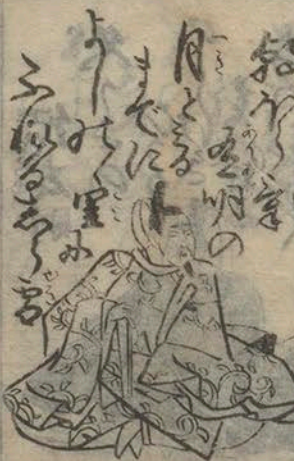 朝ぼらけ
有明の
月とみる
までに
よしのゝ里に
ふれるしら雪